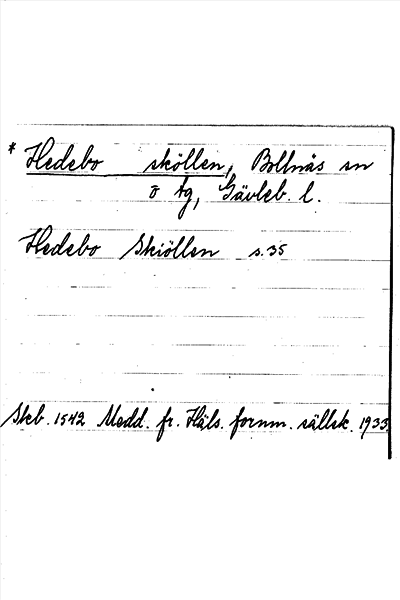 * Hedebo skøllen, Bollnäs sn
o tg, Gävleb. l.
Hedebo Skiöllen s. 35
Skb. 1542 Medd. fr. Häls. fornm. sällsk. 1933